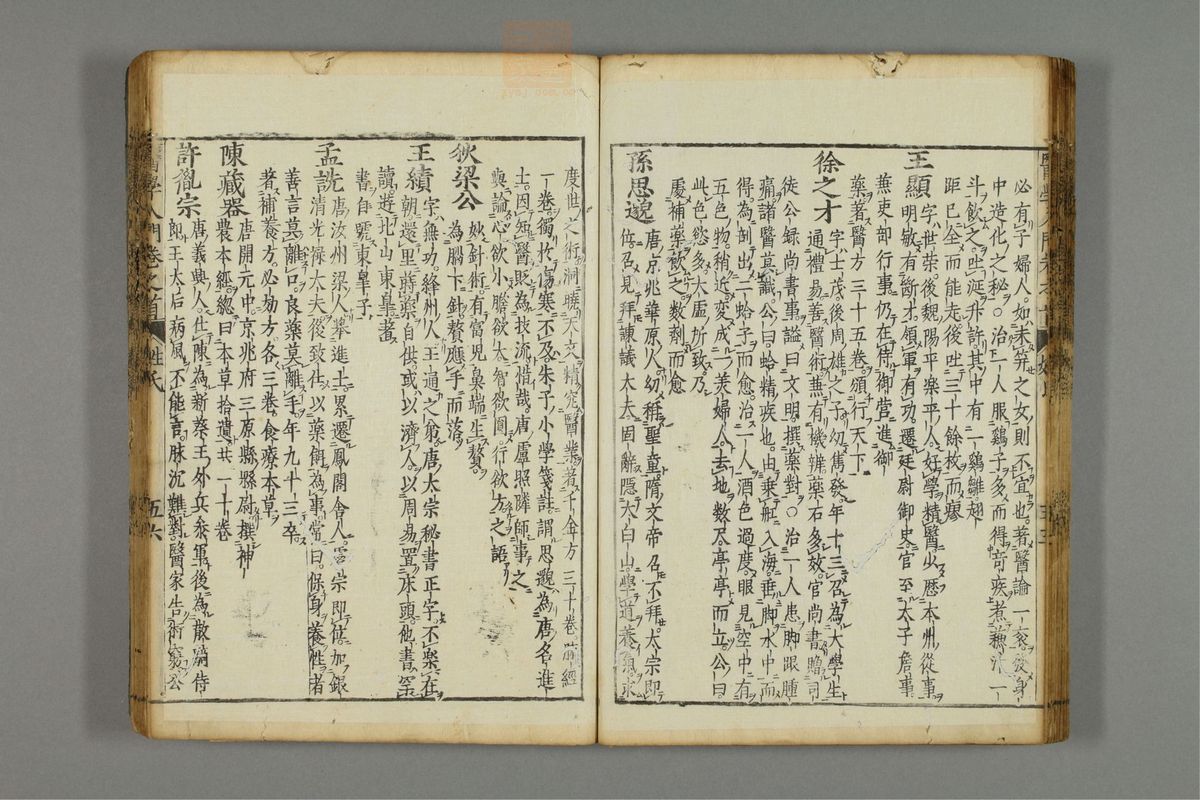 必有子婦人。如未笄之女則不宜也。著醫論一
中造化之秘○治一人服鷄子多而得奇疾煮蘓汁一
斗飲之。吐涎升許其中有一鷄雛翅
距已全而能走後吐三十餘枚而瘳
王顯
字世荣後魏陽平楽平人好學精醫少歴本州從事
明敏有斷才領軍有功。遷廷尉御史。官至太子詹事。
蕪吏部行事。仍在侍御営進御
藥著醫方三十五卷。頒行天下
徐之才
字士茂後周雄之子幼雋發年十三召為大學生
通禮易善醫術兼有機辨薬石多效。官尚書贈司
徒公録尚書事謚曰文明。撰薬對○治一人患脚跟腫
痛諸醫莫識公曰蛤精疾也。由乗舡入海。垂脚水中而
得。為剖出二蛤子而愈。治一人酒色過度。眼見空中有
五色物。稍近変成一美婦人。去地数尺。亭亭而立。公曰
此色慾多大虚所致。乃
處補薬飲之。数劑而愈
孫思邈
唐京兆華原人幼稱聖童隋文帝召不拜。太宗即
位。召見拜諫議大夫固辭隠太白山學道養氣。求
度世之術洞曉天文精究醫業著千金方三十卷。脉經
一卷獨於傷寒不及。朱子小學箋註謂思邈為唐名進
士。因知醫貶為技流惜哉。唐盧照隣師事之
與論心欲小膽欲大智欲圓。行欲方之語
狄梁公
妙針術有富児鼻端生贅。
為腦下針贅應手而落。
王績
字無功。絳州人王通之弟。唐太宗秘書正字不楽在
朝。還里蒔薬自供。或以濟人。以周易置床頭。他書罕
讀。遊北山東皋著
書自號東皐子
孟詵
唐汝州梁人舉進士累遷鳳閣舎人。睿宗即位。加銀
清光禄大夫後致仕以薬餌為事常曰保身養性者
善言莫離口。良薬莫離手年九十三卒。
著補養方。必効方各三卷。食療本草
陳藏器
唐開元中。京兆府三原縣縣尉撰神
農本經總曰本草拾遺共一十卷
許胤宗
唐義興人。仕陳為新蔡王外兵參軍後為散騎侍
郎王太后病風。不能言。脉沉難對醫家告術窮公
醫學入門卷之首
姓氏
五六